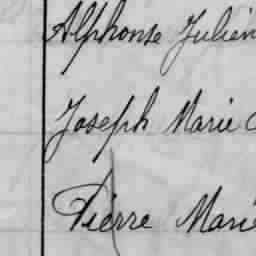 Alphonse Julien
Joseph Marie
Pierre Marie